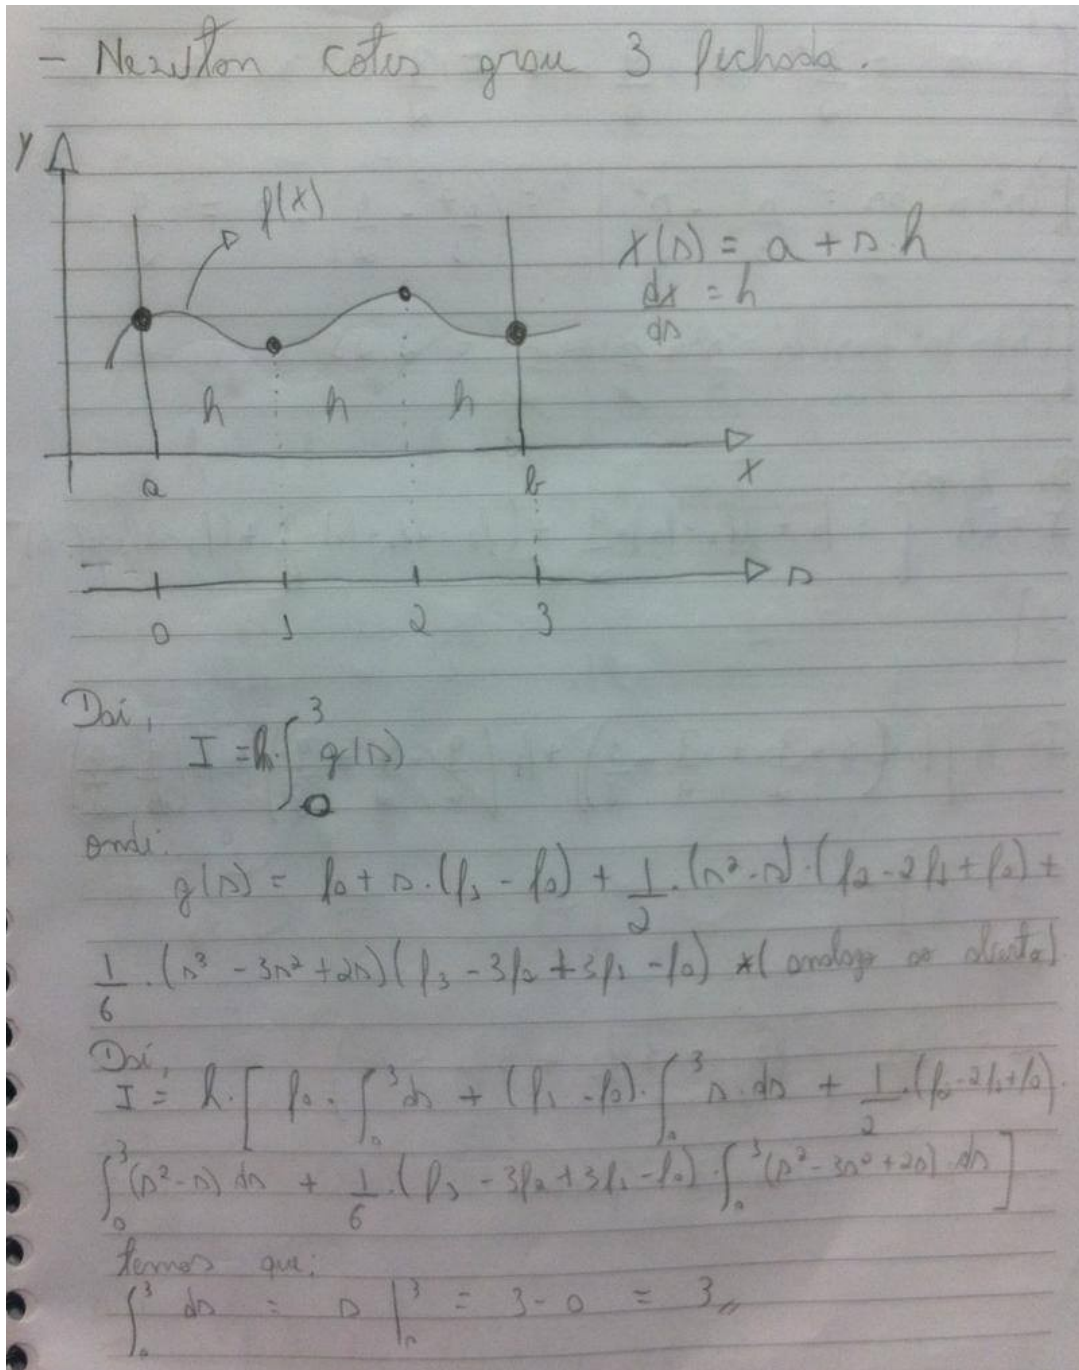 - Newton cotes grau 3 fechada.
Y
f(x)
x(s) = a + s.h
dx/ds = h
h h h
a b X
s
0 1 2 3
Daí,
I = h.∫₀³ g(s)
onde:
g(s) = f₀ + s.(f₁ - f₀) + 1/2.(s² - s).(f₂ - 2f₁ + f₀) +
1/6.(s³ - 3s² + 2s)(f₃ - 3f₂ + 3f₁ - f₀) *(analogo ao
Daí,
I = h.[f₀.∫₀³ds + (f₁ - f₀).∫₀³ s.ds + 1/2.(f₂ - 2f₁ + f₀).
∫₀³(s² - s)ds + 1/6.(f₃ - 3f₂ + 3f₁ - f₀).∫₀³(s³ - 3s² + 2s).ds]
temos que:
∫₀³ ds = s|₀³ = 3 - 0 = 3,,